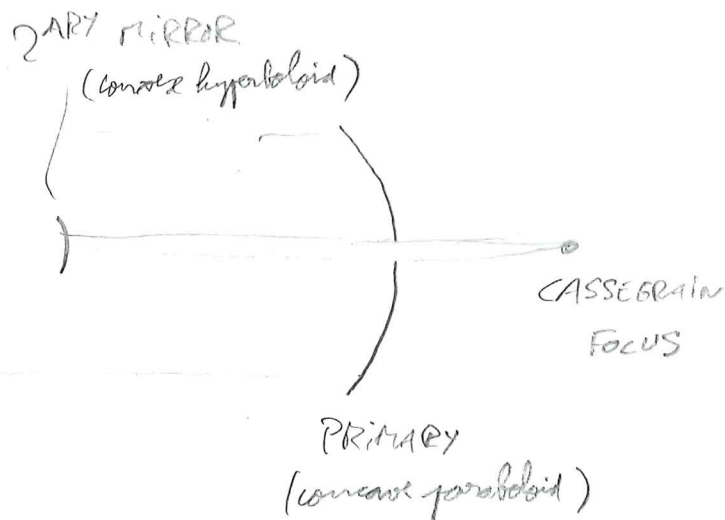 2ARY MIRROR
(convex hyperboloid)
CASSEGRAIN
FOCUS
PRIMARY
(concave paraboloid)